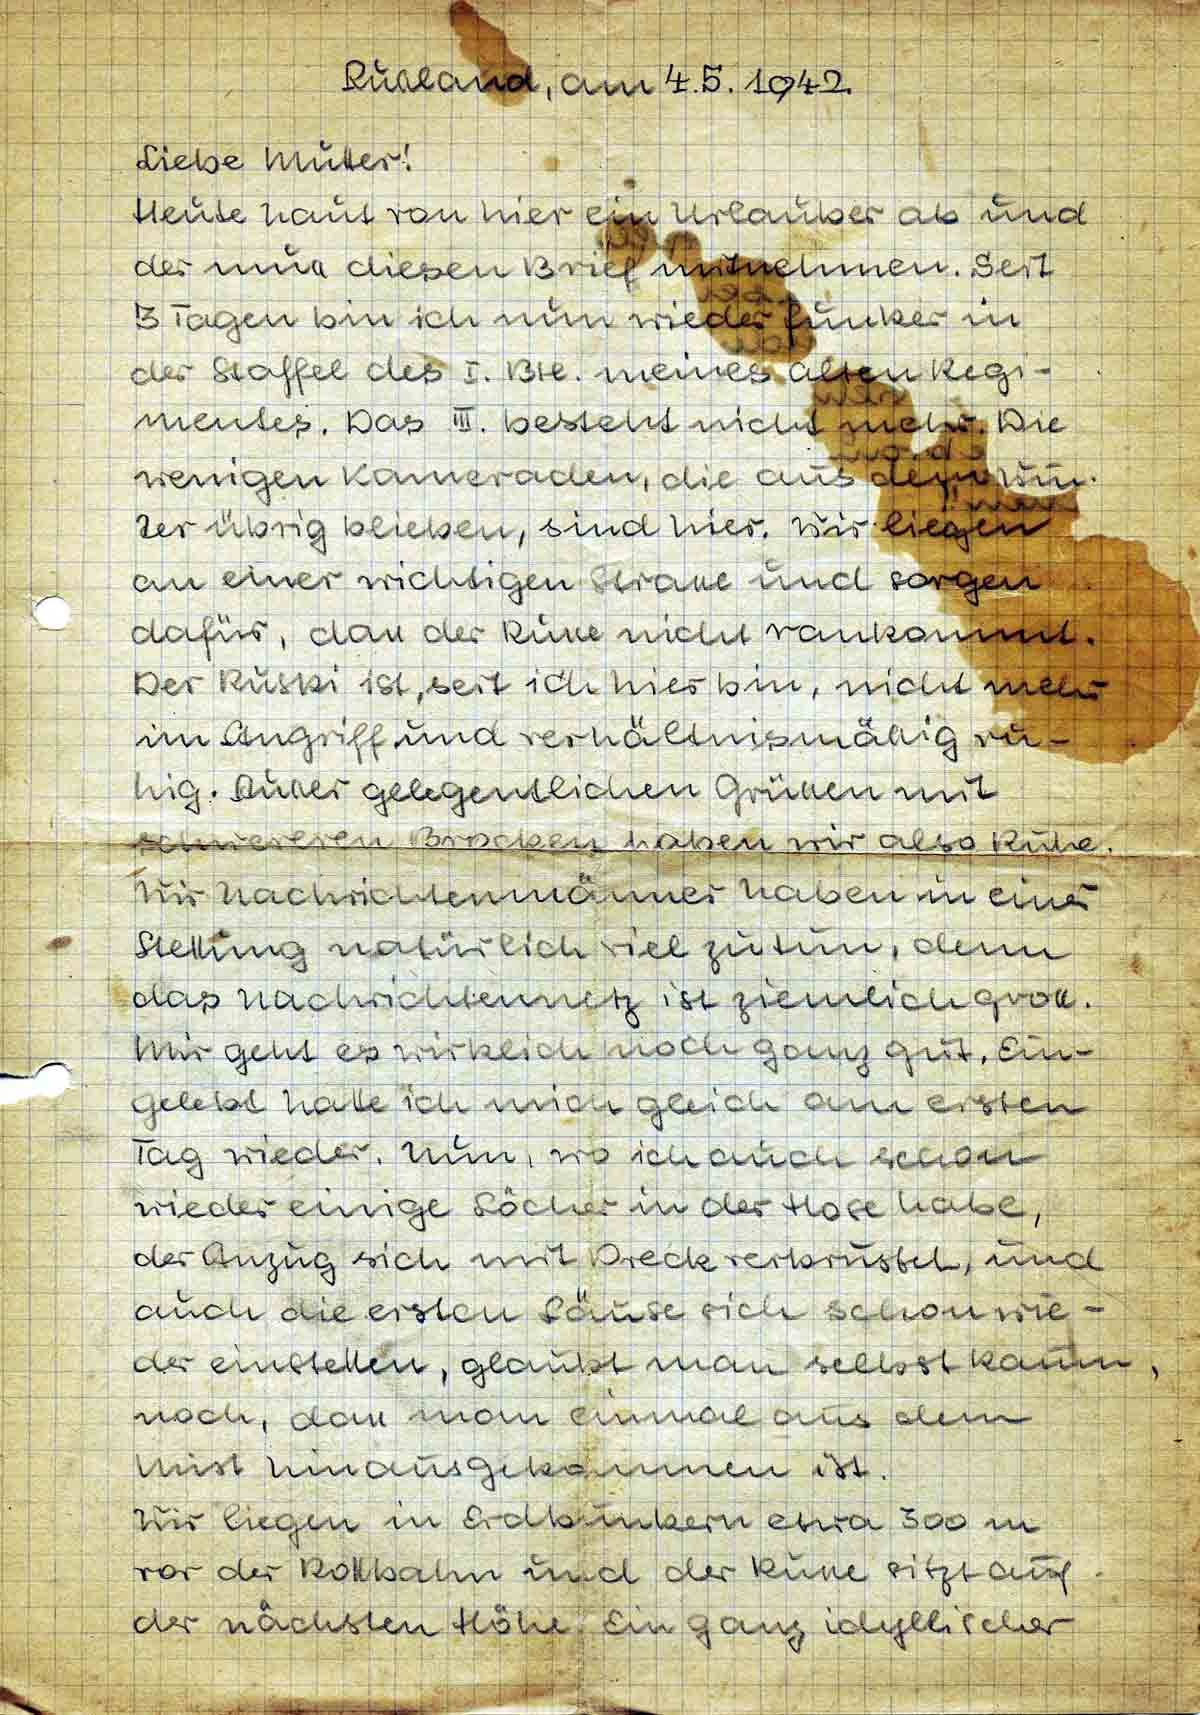 Rußland, am 4.5.1942.
Liebe Mutter!
Heute haut von hier ein Urlauber ab und
der muß diesen Brief mitnehmen. Seit
3 Tagen bin ich nun wieder Funker in
der Staffel des I. Btl. meines alten Regi-
mentes. Das III. besteht nicht mehr. Die
wenigen Kameraden, die aus dem Win-
ter übrig blieben, sind hier. Wir liegen
an einer wichtigen Straße und sorgen
dafür, daß der Russe nicht rankommt.
Der Ruski ist, seit ich hier bin, nicht mehr
im Angriff und verhältnismäßig ru-
hig. Außer gelegentlichen Grüßen mit
schwereren Brocken haben wir also Ruhe.
Wir Nachrichtenmänner haben in einer
Stellung natürlich viel zu tun, denn
das Nachrichtennetz ist ziemlich groß.
Mir geht es wirklich noch ganz gut. Ein-
gelebt hatte ich mich gleich am ersten
Tag wieder. Nun, wo ich auch schon
wieder einige Löcher in der Hose habe,
der Anzug sich mit Dreck verkrustet, und
auch die ersten Läuse sich schon wie-
der einstellen, glaubt man selbst kaum,
noch, daß man einmal aus dem
Mist hinausgekommen ist.
Wir liegen in Erdbunkern etwa 300 m
vor der Rollbahn und der Russe sitzt auf
der nächsten Höhe. Ein ganz idyllischer